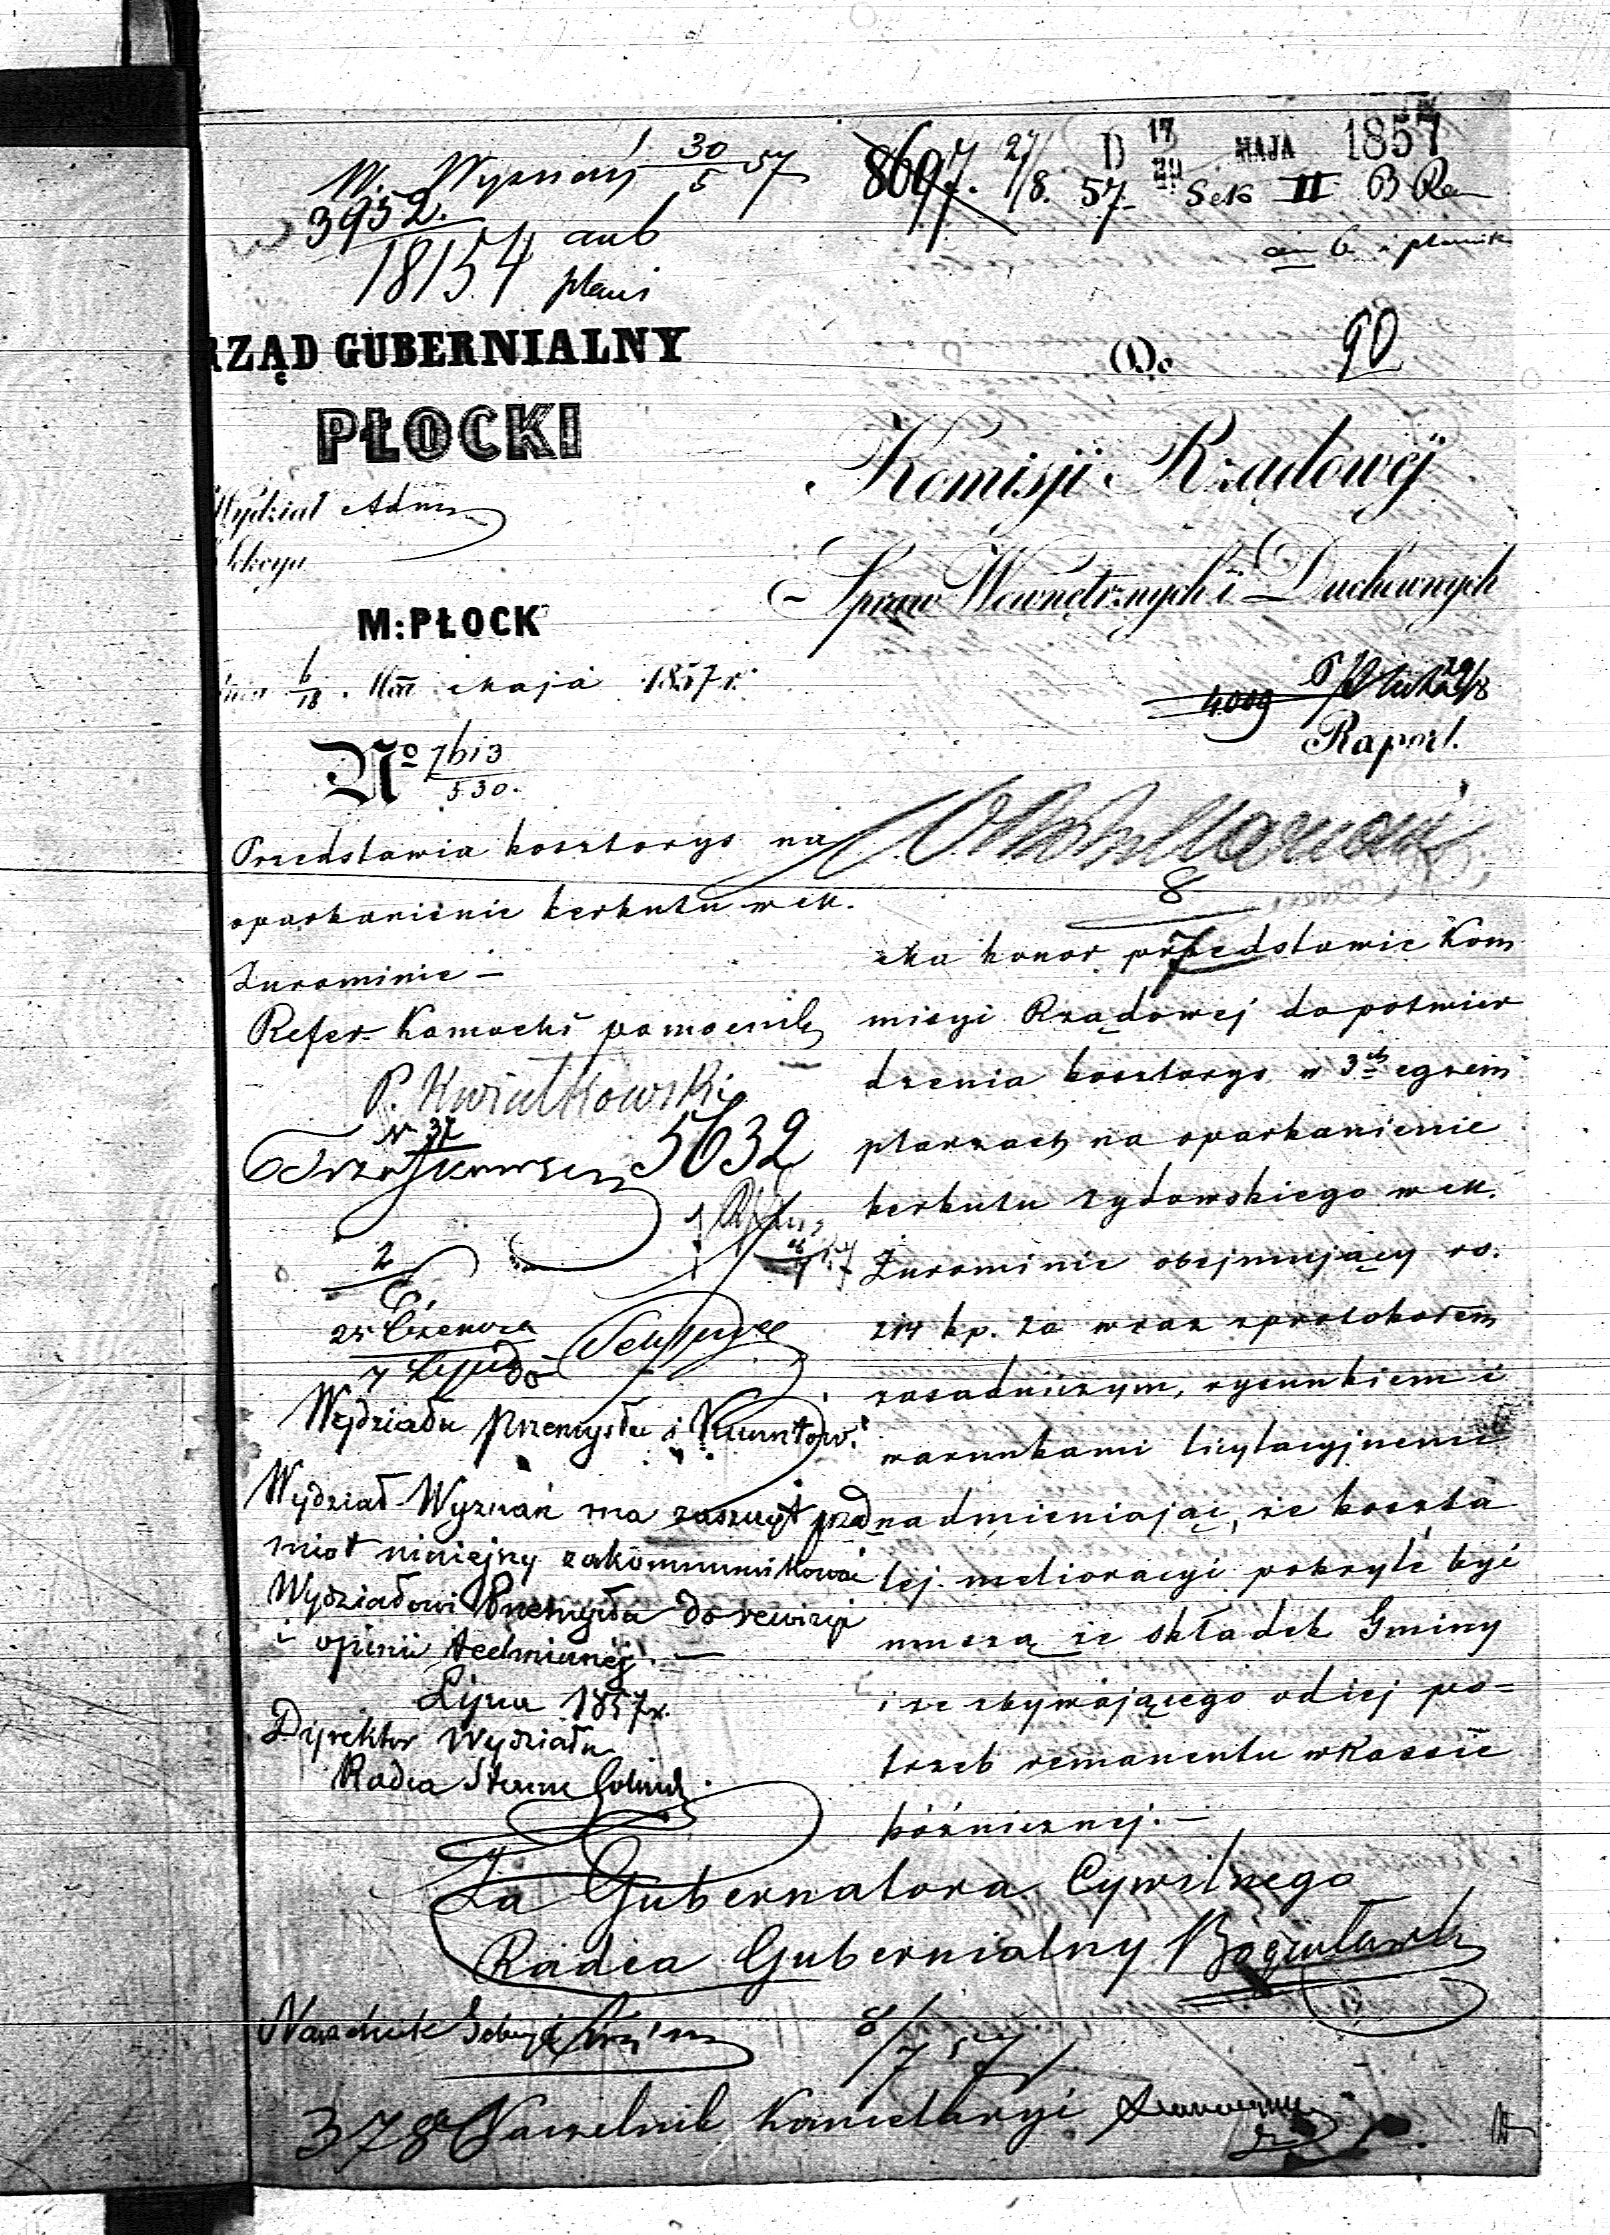 W. Wyznań 30/5 57
3952.
18154 anb
plani
8697. 27/8. 57. D 17 MAJA 1857
Sek II B
RZĄD GUBERNIALNY
PŁOCKI
Wydział Adm
Sekcya
M: PŁOCK
dnia 6/18 Maja 1857 r.
No 7613/530.
Przedstawia kosztorys na
oparkanienie kerkutu w m.
Żurominie –
Refer. Kamocki pomocnik
P. Kwiatkowski
N 37
5632
2
25 Czerwca
7 Lipca
do
Wydziału Przemysłu i Kunsztów.
Wydział Wyznań ma zaszczyt przed
miot niniejszy zakommunikować
Wydziałowi Przemysłu do rewizyi
i opinii technicznéj. –
Lipca 1857 r.
Dyrektor Wydziału
Radca Stanu
Do
90
Komisji Rządowéj
Spraw Wewnętrznych i Duchownych
4009
Raport.
8
7
Ma honor przedstawić Kom
misyi Rządowej do potwier
dzenia kosztorys w 3ch egzem
plarzach na oparkanienie
kerkutu żydowskiego w m.
Żurominie obejmujący rs.
214 kp. 20 wraz z protokołem
zasadniczym, rysunkiem i
warunkami licytacyjnemi
nadmieniając, że koszta
tej melioracyi pokryte być
muszą ze składek Gminy
i ze zbywającego od jej po=
trzeb remanentu w Kassie
bóżnicznej. –
Za Gubernatora Cywilnego
Radca Gubernialny
8/7 57
378 Naczelnik Kancellaryi